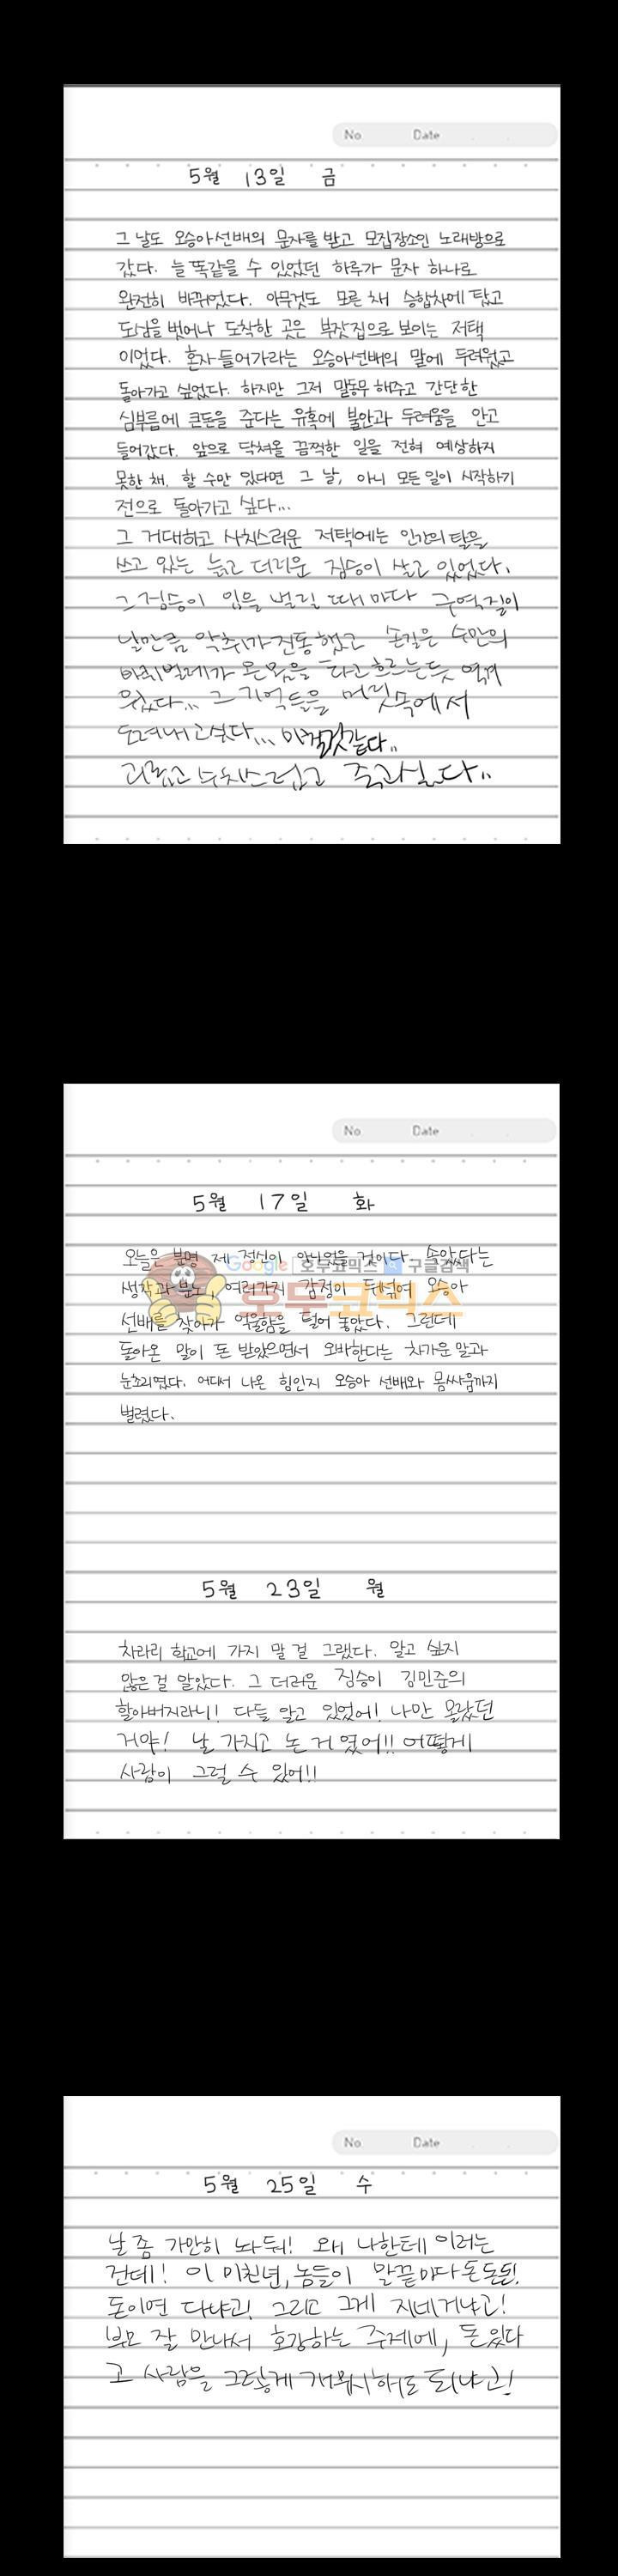 No Date
5월 13일 금
그 날도 오승아선배의 문자를 받고 모집장소인 노래방으로
갔다. 늘 똑같을 수 있었던 하루가 문자 하나로
완전히 바뀌었다. 아무것도 모른 채 승합차에 탔고
도심을 벗어나 도착한 곳은 부잣집으로 보이는 저택
이었다. 혼자 들어가라는 오승아선배의 말에 두려웠고
돌아가고 싶었다. 하지만 그저 말동무 해주고 간단한
심부름에 큰돈을 준다는 유혹에 불안과 두려움을 안고
들어갔다. 앞으로 닥쳐올 끔찍한 일을 전혀 예상하지
못한 채. 할 수만 있다면 그 날, 아니 모든 일이 시작하기
전으로 돌아가고 싶다...
그 거대하고 사치스러운 저택에는 인간의 탈을
쓰고 있는 늙고 더러운 짐승이 살고 있었다.
그 짐승이 입을 벌릴 때 마다 구역질이
날만큼 악취가 진동했고 손길은 수만의
바퀴벌레가 온몸을 타고 흐르는듯 역겨
웠다... 그 기억들을 머릿속에서
도려내고싶다... 미칠것같다..
괴롭고 수치스럽고 죽고싶다..
No Date
5월 17일 화
오늘은 분명 제 정신이 아니었을 것이다. 속았다는
생각과 분노, 여러가지 감정이 뒤섞여 오승아
선배를 찾아가 억울함을 털어 놓았다. 그런데
돌아온 말이 돈 받았으면서 오바한다는 차가운 말과
눈초리였다. 어디서 나온 힘인지 오승아 선배와 몸싸움까지
벌렸다.
Google 호두코믹스 구글검색
호두코믹스
5월 23일 월
차라리 학교에 가지 말 걸 그랬다. 알고 싶지
않은 걸 알았다. 그 더러운 짐승이 김민준의
할아버지라니! 다들 알고 있었어! 나만 몰랐던
거야! 날 가지고 논 거였어!! 어떻게
사람이 그럴 수 있어!!
No Date
5월 25일 수
날 좀 가만히 놔둬! 왜 나한테 이러는
건데! 이 미친년,놈들이 말끝마다 돈돈돈!
돈이면 다냐고! 그리고 그게 지네거냐고!
부모 잘 만나서 호강하는 주제에, 돈있다
고 사람을 그렇게 개무시해도 되냐고!